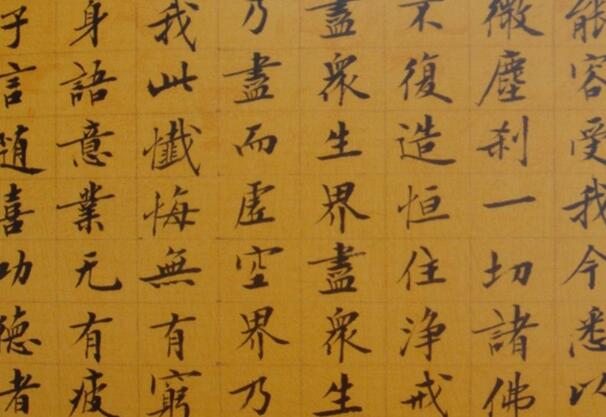 能容受我今悉以
微塵刹一切諸佛
不復造恒住淨戒
盡衆生界盡衆生
乃盡而虚空界乃
我此懺悔無有窮
身語意業无有疲
子言隨喜功德者